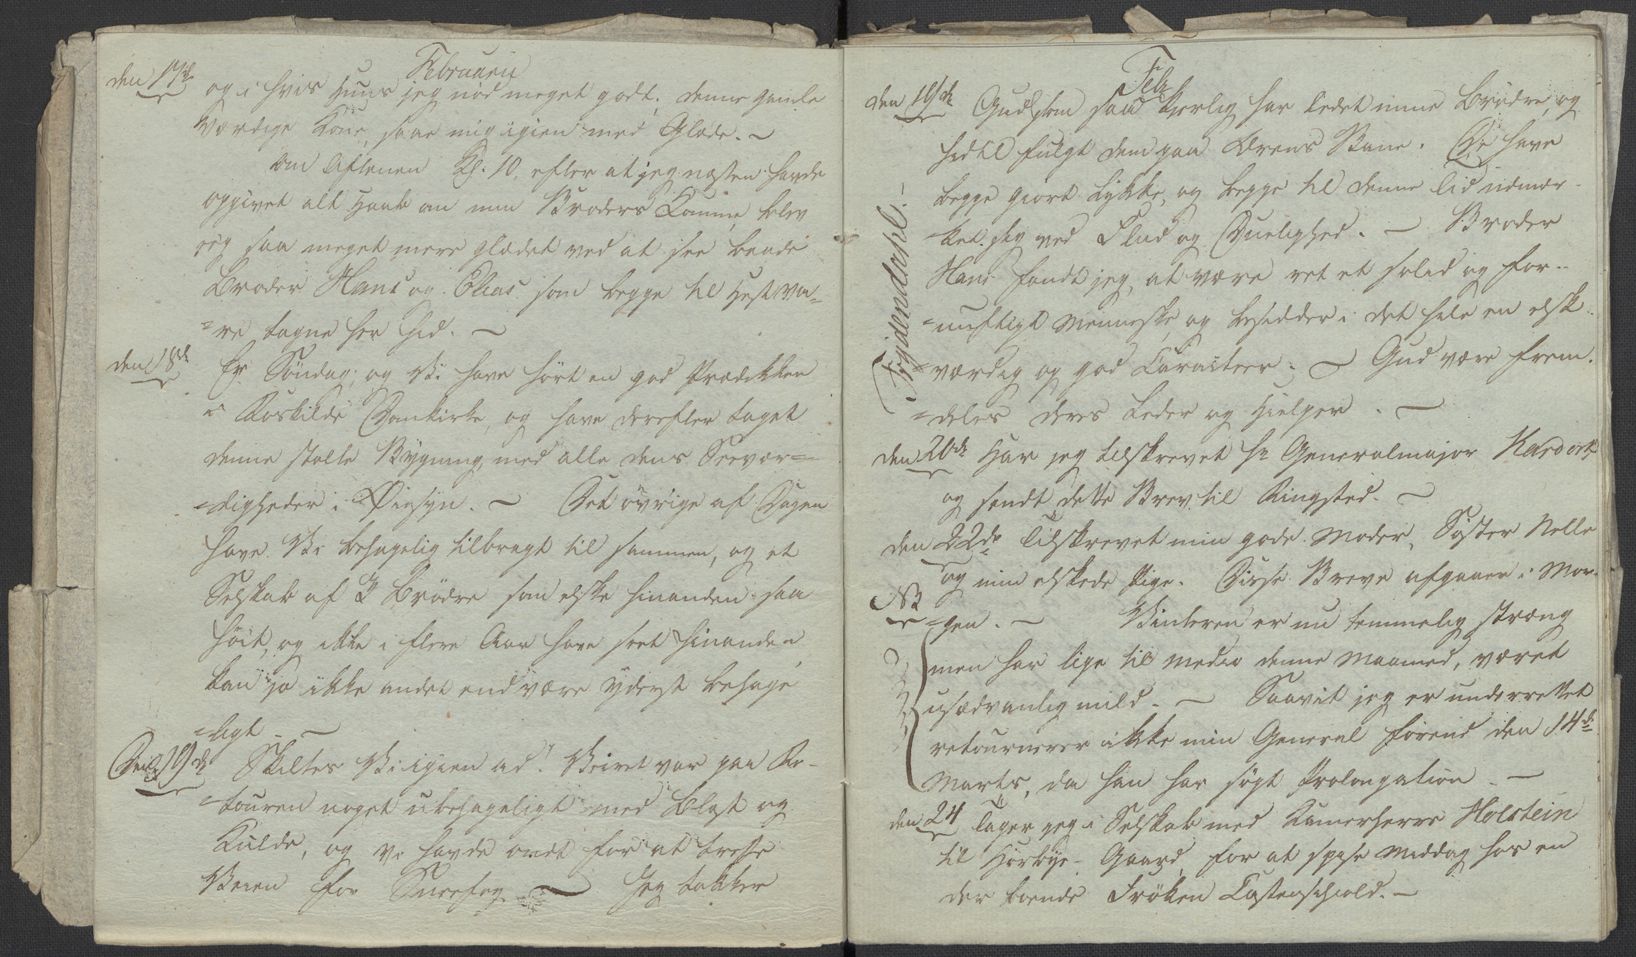 Februarii
den 17de og i hvis Huus jeg nød meget godt. Denne gamle
værdige Kone, saae mig igien med Glæde. –
Om Aftenen Kl. 10, efter at jeg næsten havde
opgivet alt Haab om min Broders Komme, blev
jeg saa meget mere glædet ved at see baade
Broder Hans og Elias som begge til Hest va-
=re tagne her hid. –
den 18de Er Søndag; og Vi have hørt en god Prædikken
i Roskilde Domkirke, og have derefter taget
denne stolte Bygning med alle dens Seevær=
=digheder i Øiesyn. – Det øvrige af Dagen
have Vi behagelig tilbragt til sammen, og et
Selskab af 3 Brødre som elske hinanden saa
høit, og ikke i flere Aar have seet hinanden,
kan jo ikke andet end være yderst behage
=ligt. –
Den 19de Skiltes Vi igien ad. Veiret var paa Re-
=touren noget ubehageligt med Blæst og
Kulde, og vi havde ondt for at træffe
Veien for Sneefog. – Jeg takker
Febr
den 19de Gud som saa kjerlig har ledet mine Brødre, og
hidtil fulgt dem paa Ærens Bane. De have
begge giort Lykke, og begge til denne Tid udmær-
=ket sig ved Flid og Duelighed. – Broder
Hans fandt jeg, at være ret et solid og for-
=nuftigt Menneske og besidder i det hele en elsk-
=værdig og god Caracteer. – Gud være frem-
=deles deres Leder og Hielper. –
Frydendahl!
den 20de Har jeg tilskrevet Hr Generalmajor Kardorff
og sendt dette Brev til Ringsted. –
den 22de Tilskrevet min gode Moder, Søster Nelle
og min elskede Pige. Disse Breve afgaaer i Mor-
NB =gen. – Vinteren er nu temmelig stræng
men har lige til medio denne Maaned, været
usædvanlig mild. – Saavit jeg er underrettet
retournerer ikke min General førend den 14de
Marts, da han har søgt Prolongation. –
den 24 Tager jeg i Selskab med Kamerherre Holstein
til Hørbye-Gaard, for at spise Middag hos en
der boende Frøken Castenschiold. –